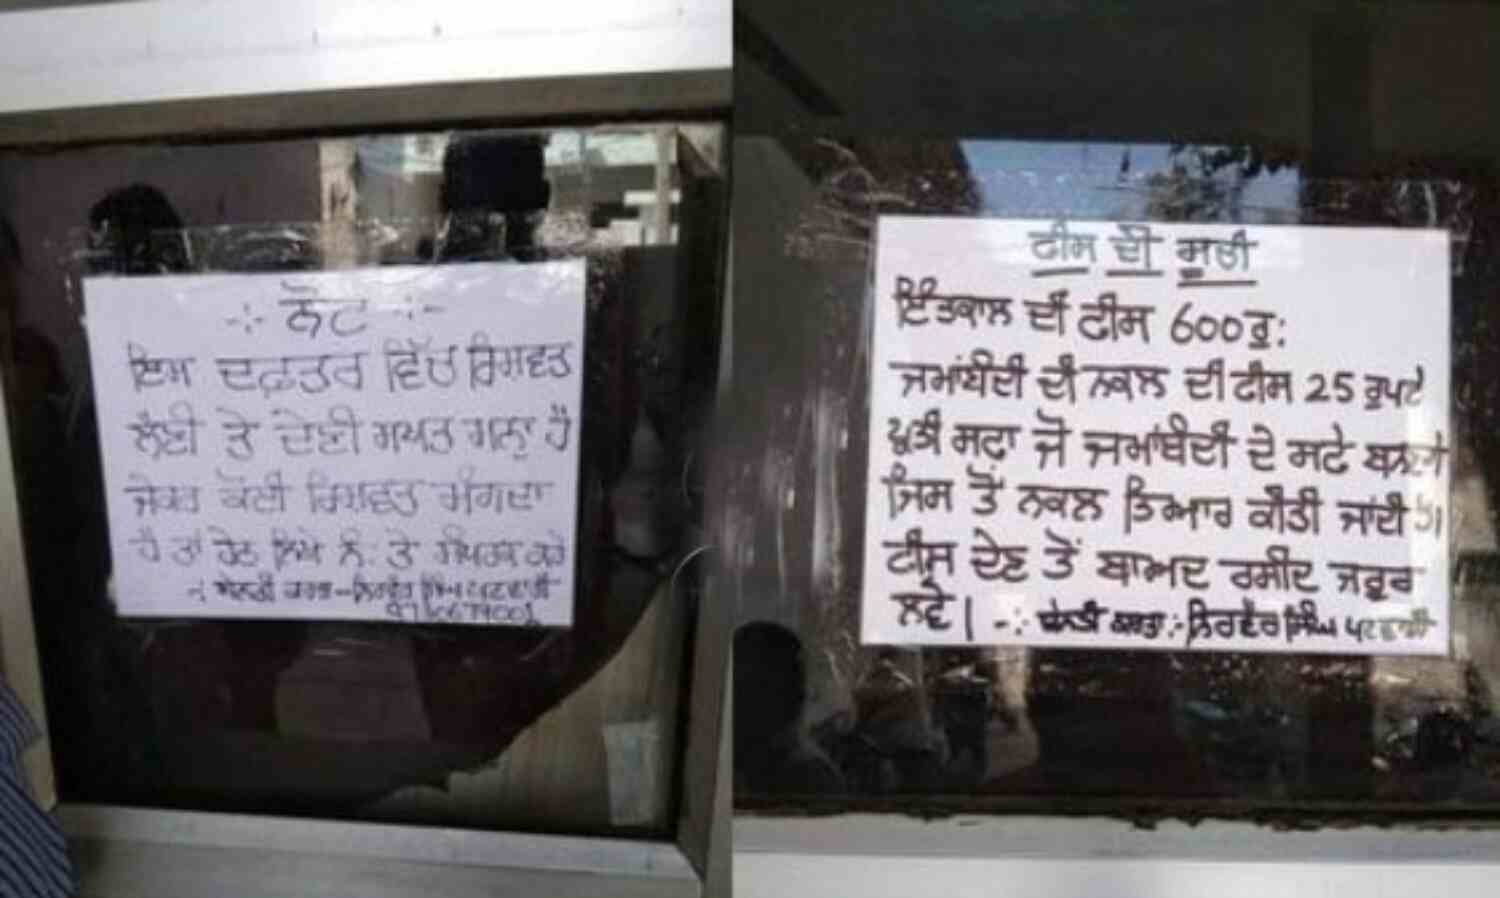 -:- ਨੋਟ -:-
ਇਸ ਦਫ਼ਤਰ ਵਿੱਚ ਰਿਸ਼ਵਤ
ਲੈਣੀ ਤੇ ਦੇਣੀ ਸਖ਼ਤ ਮਨ੍ਹਾ ਹੈ
ਜੇਕਰ ਕੋਈ ਰਿਸ਼ਵਤ ਮੰਗਦਾ
ਹੈ ਤਾਂ ਹੇਠ ਲਿਖੇ ਨੰ: ਤੇ ਸੰਪਰਕ ਕਰੋ
-: ਬੇਨਤੀ ਕਰਤਾ - ਨਿਰਵੈਰ ਸਿੰਘ ਪਟਵਾਰੀ
ਫੀਸ ਦੀ ਸੂਚੀ
ਇੰਤਕਾਲ ਦੀ ਫੀਸ 600 ਰੁ:
ਜਮਾਂਬੰਦੀ ਦੀ ਨਕਲ ਦੀ ਫੀਸ 25 ਰੁਪਏ
ਪ੍ਰਤੀ ਸਫਾ ਜੋ ਜਮਾਂਬੰਦੀ ਦੇ ਸਫੇ ਬਨਣਗੇ
ਜਿਸ ਤੋਂ ਨਕਲ ਤਿਆਰ ਕੀਤੀ ਜਾਂਦੀ ਹੈ।
ਫੀਸ ਦੇਣ ਤੋਂ ਬਾਅਦ ਰਸੀਦ ਜਰੂਰ
ਲਵੋ। -:- ਬੇਨਤੀ ਕਰਤਾ :- ਨਿਰਵੈਰ ਸਿੰਘ ਪਟਵਾਰੀ